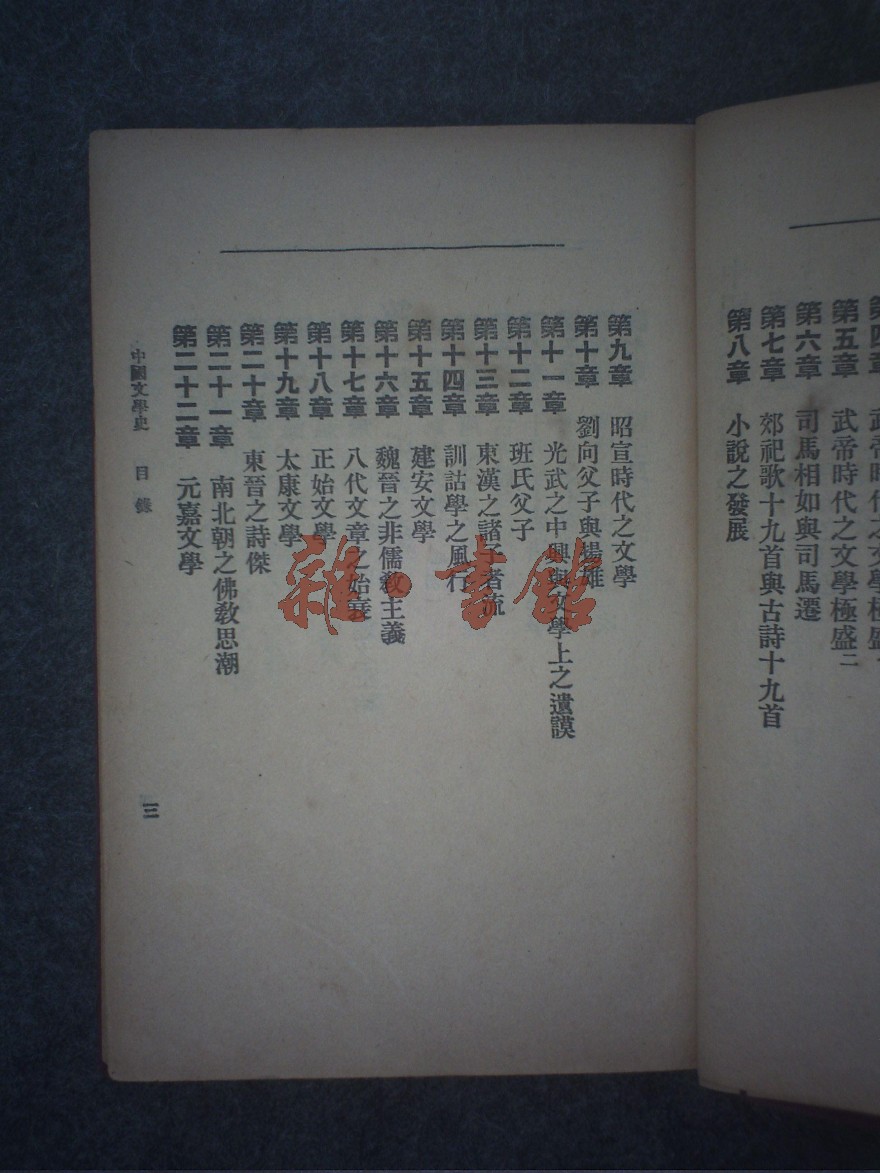 第四章 武帝時代之文學極盛一
第五章 武帝時代之文學極盛二
第六章 司馬相如與司馬遷
第七章 郊祀歌十九首與古詩十九首
第八章 小說之發展
第九章 昭宣時代之文學
第十章 劉向父子與揚雄
第十一章 光武之中興與文學上之遺謨
第十二章 班氏父子
第十三章 東漢之諸子者流
第十四章 訓詁學之風行
第十五章 建安文學
第十六章 魏晉之非儒敎主義
第十七章 八代文章之始衰
第十八章 正始文學
第十九章 太康文學
第二十章 東晉之詩傑
第二十一章 南北朝之佛敎思潮
第二十二章 元嘉文學
中國文學史 目錄
三
雜·書館